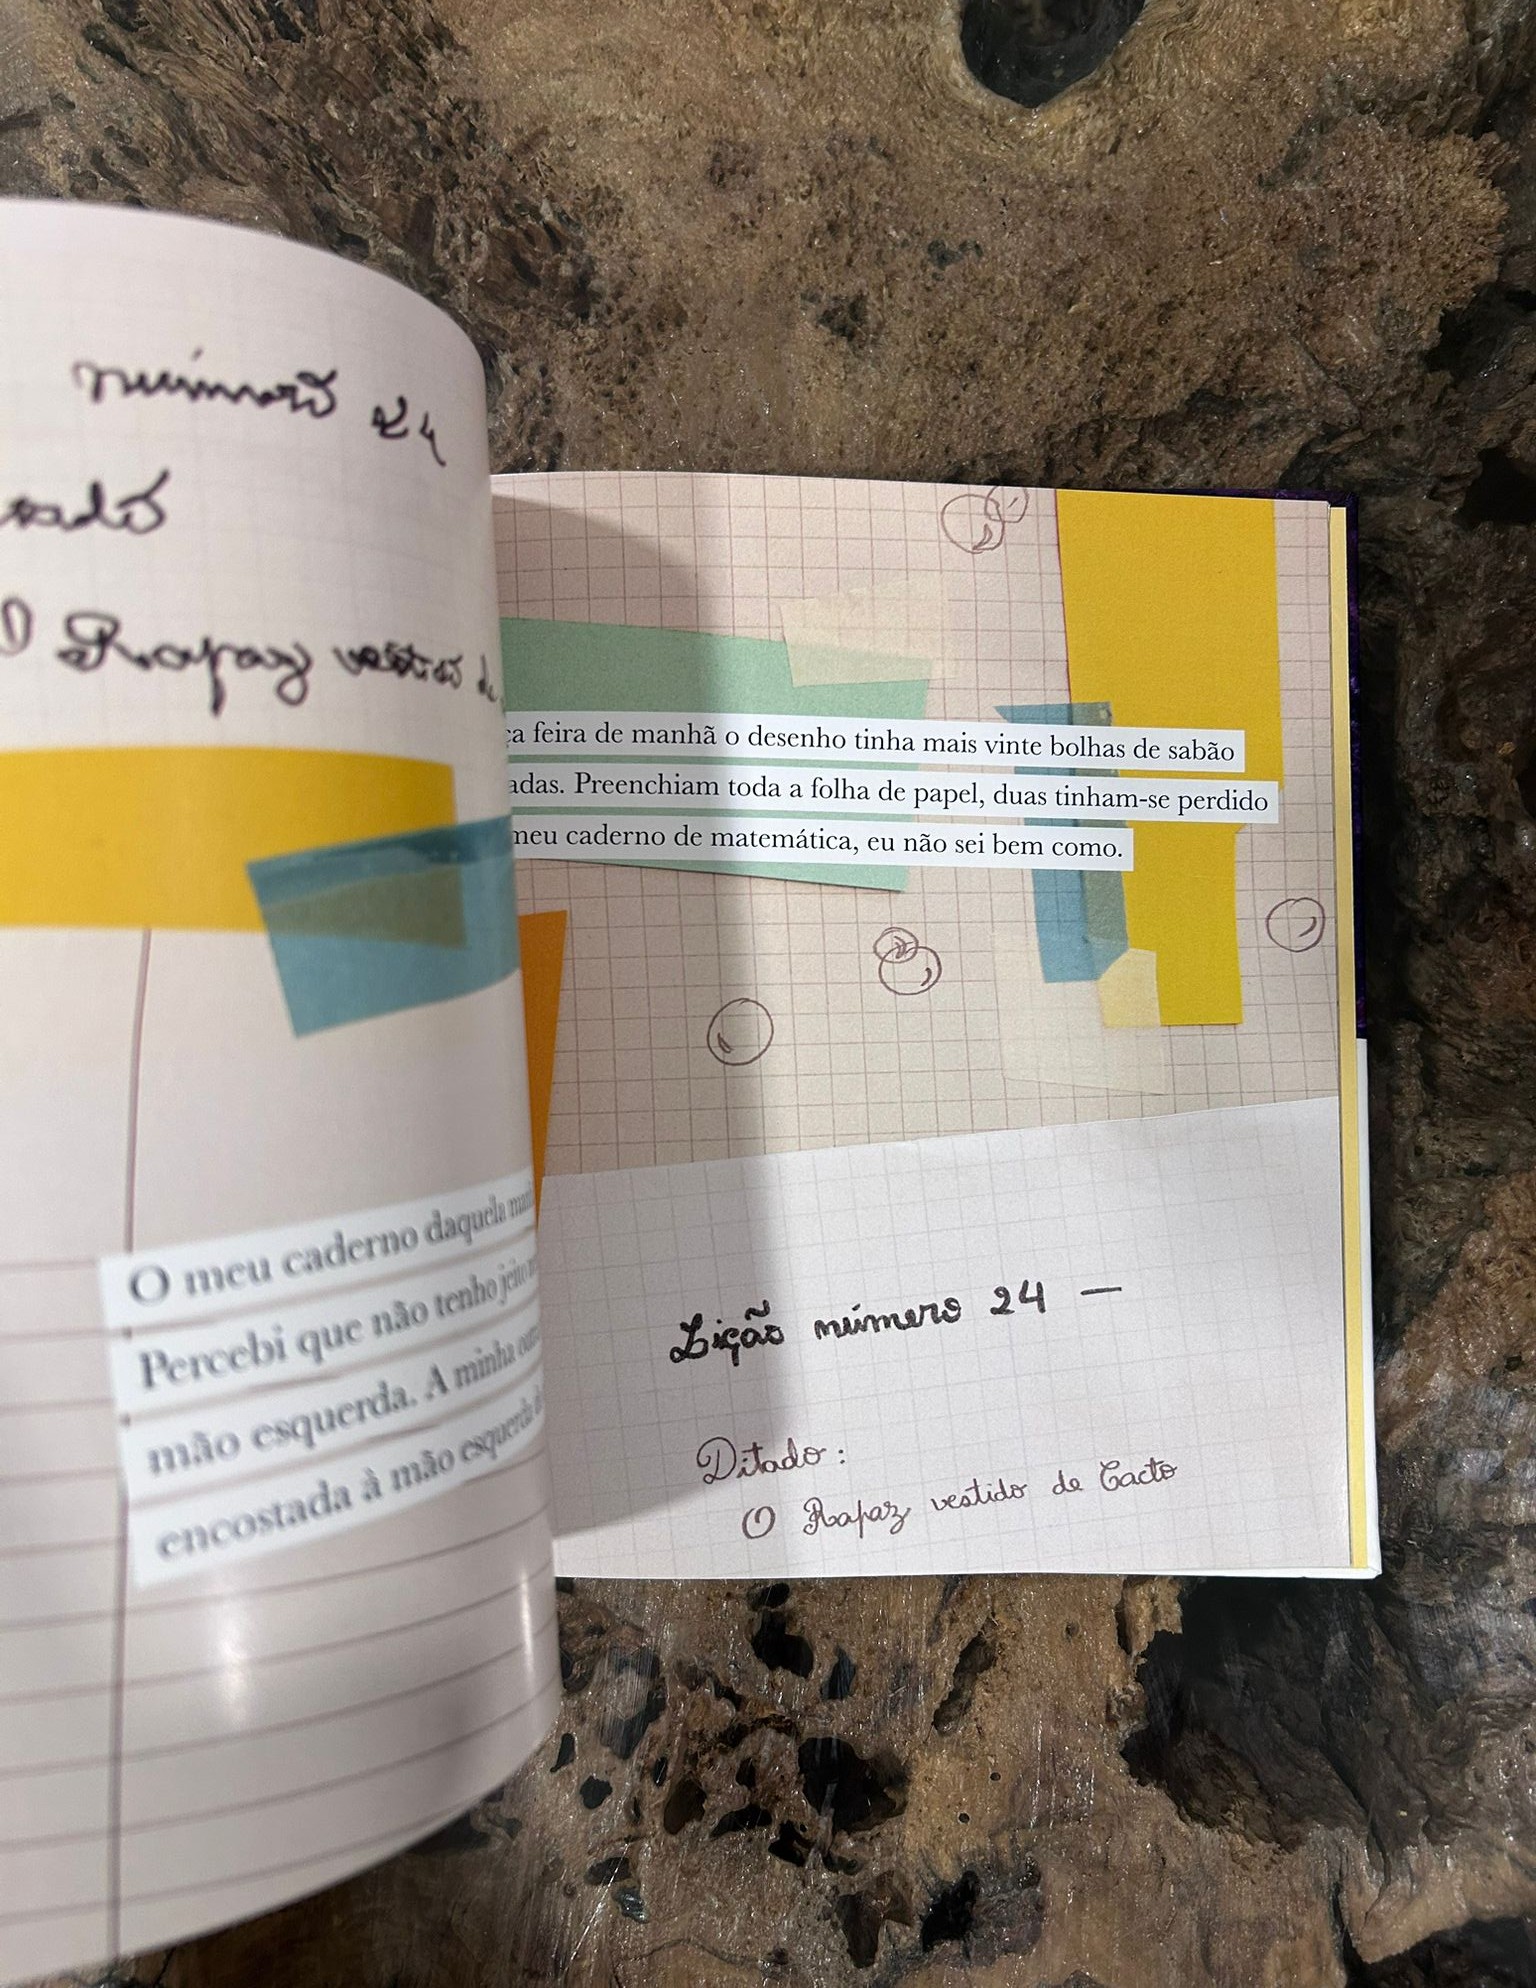 número 24
O Rapaz vestido de
O meu caderno daquela
Percebi que não tenho jeito
mão esquerda. A minha
encostada à mão esquerda
feira de manhã o desenho tinha mais vinte bolhas de sabão
adas. Preenchiam toda a folha de papel, duas tinham-se perdido
meu caderno de matemática, eu não sei bem como.
Lição número 24 —
Ditado:
O Rapaz vestido de Cacto